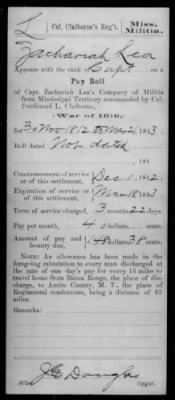 L
Col. Claiborne's Reg't.
Miss. Militia.
Zachariah Lea
Appears with the rank of Capt. on a
Pay Roll
of Capt. Zachariah Lea's Company of Militia
from Mississippi Territory commanded by Col.
Ferdinand L. Claiborne,
(War of 1812,)
for 30 Nov 1812 to Mar 1813
Roll dated Not dated
, 181
Commencement of service or of this settlement, Dec 1, 1812
Expiration of service or of this settlement, Mar 18, 1813
Term of service charged, 3 months 22 days
Pay per month, 4 dollars, cents.
Amount of pay and bounty due, 148 dollars 38 cents.
NOTE: An allowance has been made in the
foregoing calculation to every man discharged at
the rate of one day's pay for every 15 miles to
travel home from Baton Rouge, the place of dis-
charge, to Amite County, M. T., the place of
Regimental rendezvous, being a distance of 65
miles.
Remarks:
Copyist.